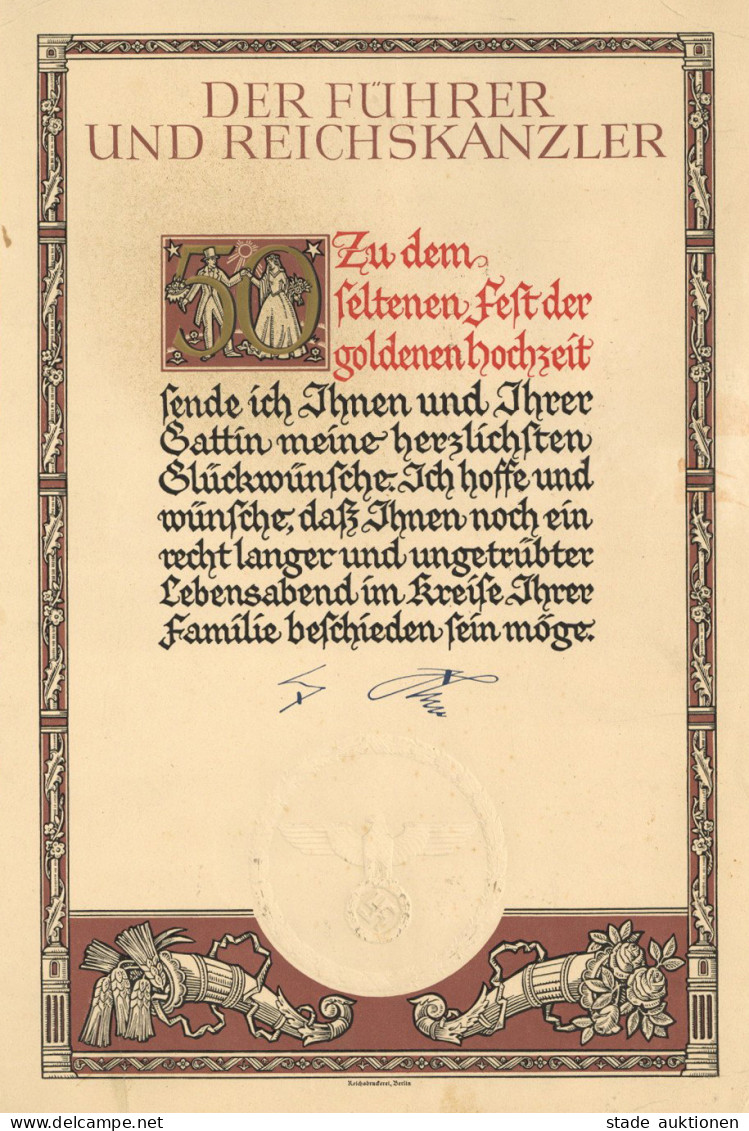 DER FÜHRER
UND REICHSKANZLER
50
Zu dem
seltenen Fest der
goldenen Hochzeit
sende ich Ihnen und Ihrer
Gattin meine herzlichsten
Glückwünsche. Ich hoffe und
wünsche, daß Ihnen noch ein
recht langer und ungetrübter
Lebensabend im Kreise Ihrer
Familie beschieden sein möge.
Reichsdruckerei, Berlin
stade auktionen